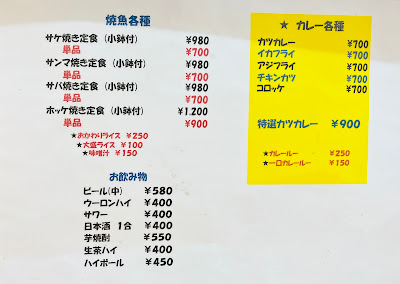 焼魚各種
サケ焼き定食（小鉢付） ¥980
単品 ¥700
サンマ焼き定食（小鉢付） ¥980
単品 ¥700
サバ焼き定食（小鉢付） ¥980
単品 ¥700
ホッケ焼き定食（小鉢付） ¥1.200
単品 ¥900
★おかわりライス ¥250
★大盛ライス ¥100
★味噌汁 ¥150
お飲み物
ビール(中) ¥580
ウーロンハイ ¥400
サワー ¥400
日本酒 1合 ¥400
芋焼酎 ¥550
生茶ハイ ¥400
ハイボール ¥450
★ カレー各種
カツカレー ¥700
イカフライ ¥700
アジフライ ¥700
チキンカツ ¥700
コロッケ ¥700
特選カツカレー ¥900
★カレールー ¥250
★一口カレールー ¥150